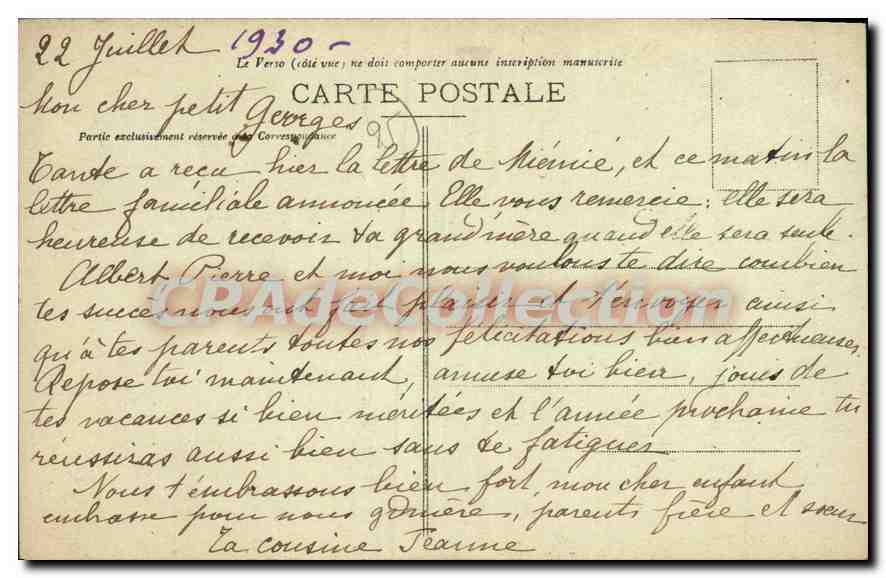 22 Juillet 1930-
Le Verso (côté vue) ne doit comporter aucune inscription manuscrite
Mon cher petit Georges
CARTE POSTALE
95
Partie exclusivement réservée à la Correspondance
Tante a reçu hier la lettre de Mémé, et ce matin la
lettre familiale annoncée. Elle vous remercie ; elle sera
heureuse de recevoir ta grand'mère quand elle sera seule.
Albert Pierre et moi nous voulons te dire combien
tes succès nous ont fait plaisir et t'envoyer ainsi
CPAdeCollection
qu'à tes parents toutes nos félicitations bien affectueuses.
Repose toi maintenant, amuse toi bien, jouis de
tes vacances si bien méritées et l'année prochaine tu
réussiras aussi bien sans te fatiguer
Nous t'embrassons bien fort, mon cher enfant
embrasse pour nous gdmère, parents frère et sœur
Ta cousine Jeanne